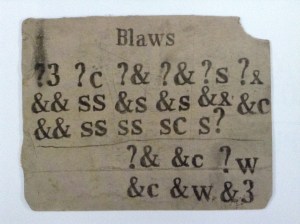 Blaws
?3 ?c ?& ?& ?s ?&
&& ss &s &s && &c
&& ss ss sc s?
?& &c ?w
&c &w &3